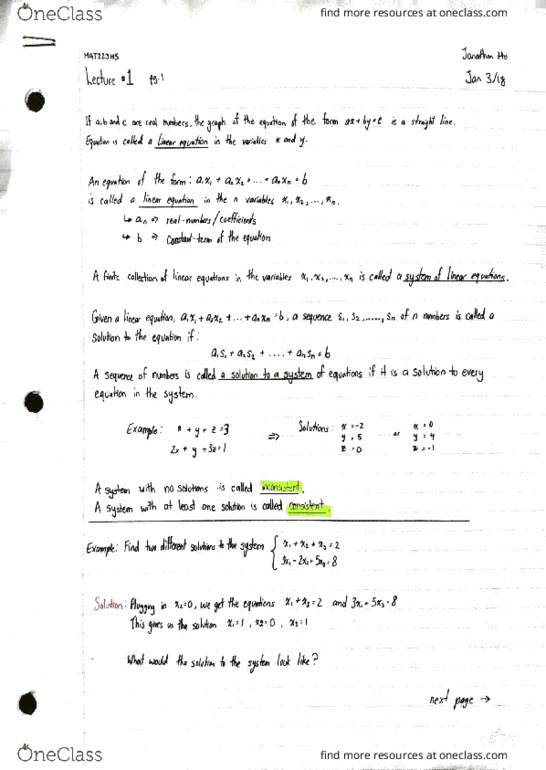 OneClass
find more resources at oneclass.com
MAT223H5
Jonathan Ho
Lecture #1 pg.1
Jan 3/18
If a,b and c are real numbers, the graph of the equation of the form ax+by=c is a straight line.
Equation is called a linear equation in the variables x and y.
An equation of the form: a₁x₁ + a₂x₂ + ... + aₙxₙ = b
is called a linear equation in the n variables x₁, x₂, ..., xₙ.
↳ aₙ ⇒ real-numbers/coefficients
↳ b ⇒ Constant-term of the equation
A finite collection of linear equations in the variables x₁, x₂, ..., xₙ is called a system of linear equations.
Given a linear equation, a₁x₁ + a₂x₂ + ... + aₙxₙ = b, a sequence s₁, s₂, ......, sₙ of n numbers is called a
solution to the equation if:
a₁s₁ + a₂s₂ + .... + aₙsₙ = b
A sequence of numbers is called a solution to a system of equations if it is a solution to every
equation in the system.
Example: x + y + z = 3 ⇒ Solutions: x = -2 or x = 0
2x + y + 3z = 1 y = 5 y = 4
z = 0 z = -1
A system with no solutions is called inconsistent.
A system with at least one solution is called consistent.
Example: Find two different solutions to the system { x₁ + x₂ + x₃ = 2
3x₁ - 2x₂ + 5x₃ = 8
Solution: Plugging in x₂=0, we get the equations x₁ + x₃ = 2 and 3x₁ + 5x₃ = 8
This gives us the solution x₁=1, x₂=0, x₃=1
What would the solution to the system look like?
next page →
OneClass
find more resources at oneclass.com